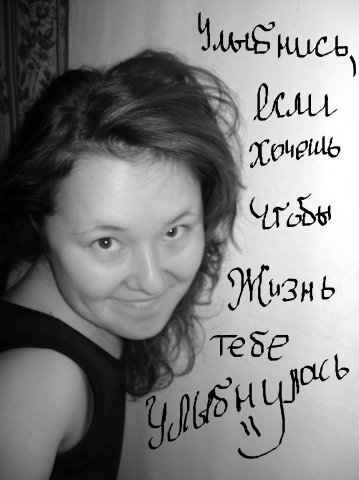 Улыбнись,
если
хочешь
чтобы
Жизнь
тебе
Улыбнулась